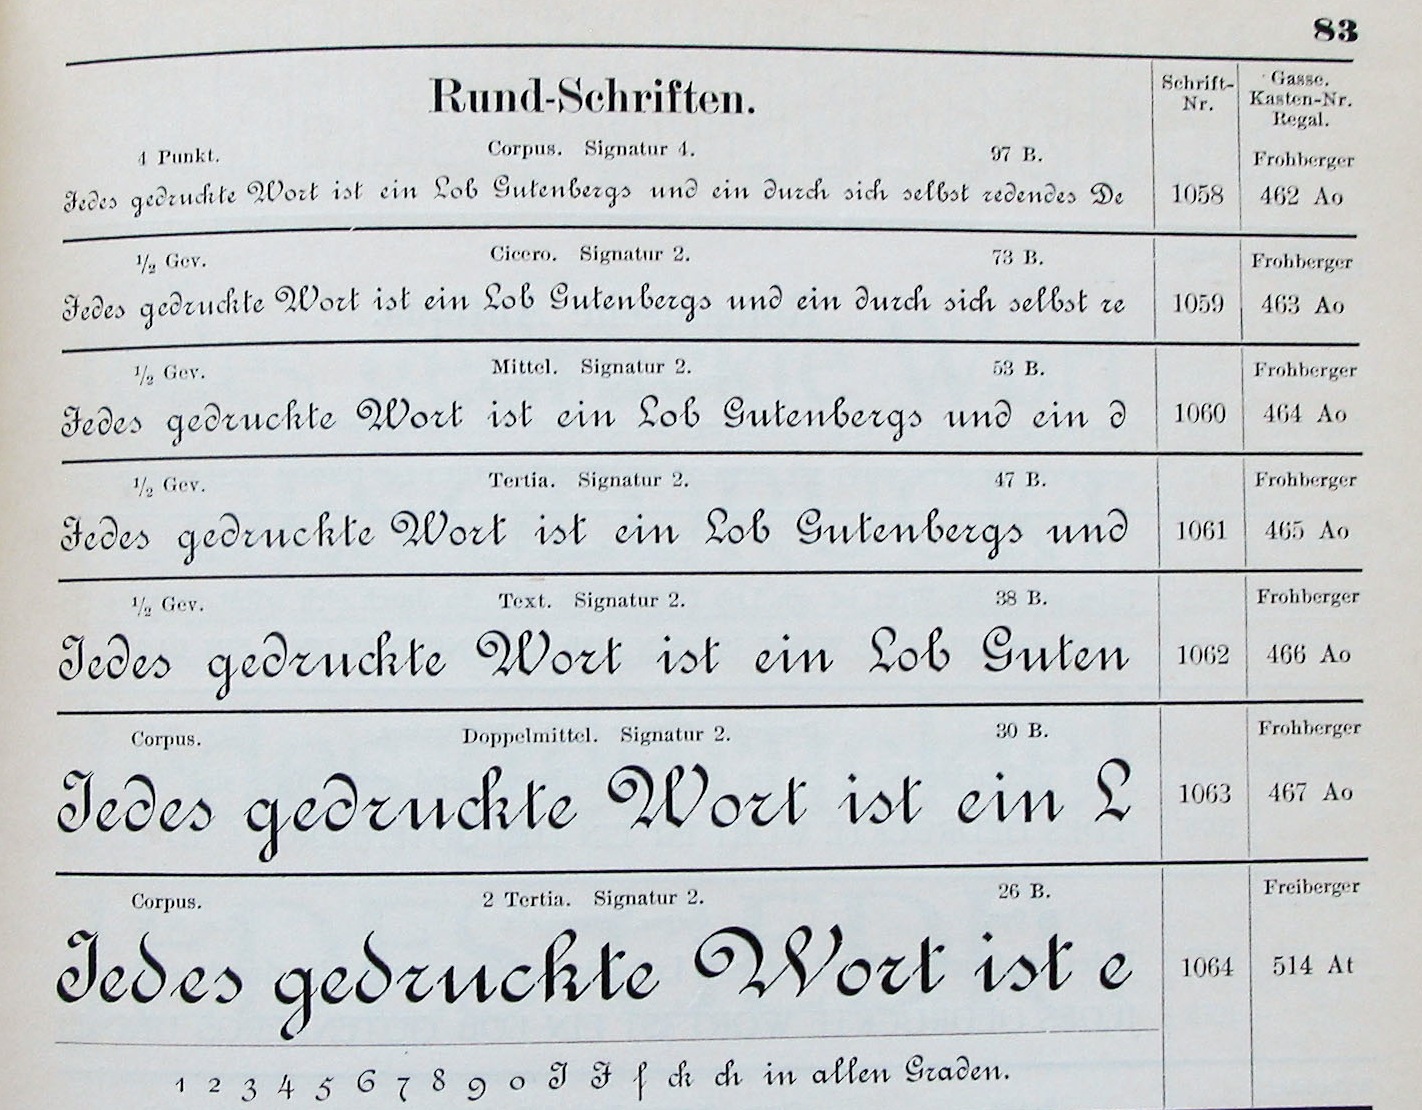 83
Rund-Schriften.
Schrift-Nr.
Gasse. Kasten-Nr. Regal.
4 Punkt. Corpus. Signatur 4. 97 B. Frohberger
Jedes gedruckte Wort ist ein Lob Gutenbergs und ein durch sich selbst redendes De 1058 462 Ao
1/2 Gev. Cicero. Signatur 2. 73 B. Frohberger
Jedes gedruckte Wort ist ein Lob Gutenbergs und ein durch sich selbst re 1059 463 Ao
1/2 Gev. Mittel. Signatur 2. 53 B. Frohberger
Jedes gedruckte Wort ist ein Lob Gutenbergs und ein d 1060 464 Ao
1/2 Gev. Tertia. Signatur 2. 47 B. Frohberger
Jedes gedruckte Wort ist ein Lob Gutenbergs und 1061 465 Ao
1/2 Gev. Text. Signatur 2. 38 B. Frohberger
Jedes gedruckte Wort ist ein Lob Guten 1062 466 Ao
Corpus. Doppelmittel. Signatur 2. 30 B. Frohberger
Jedes gedruckte Wort ist ein L 1063 467 Ao
Corpus. 2 Tertia. Signatur 2. 26 B. Freiberger
Jedes gedruckte Wort ist e 1064 514 At
1 2 3 4 5 6 7 8 9 0 J F ſ ck ch in allen Graden.